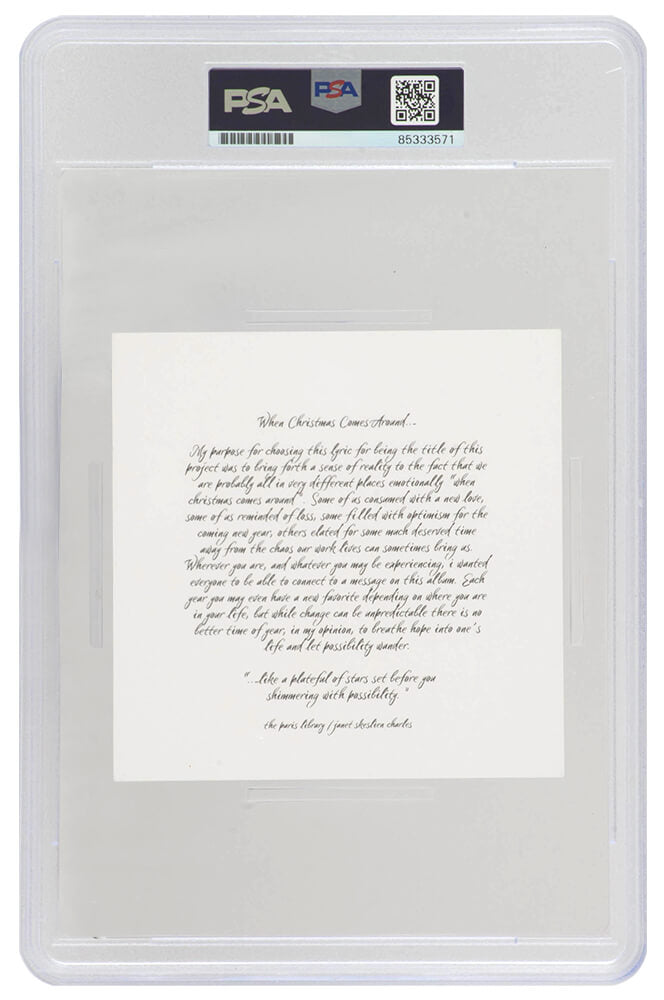 PSA
PSA
85333571
When Christmas Comes Around...
My purpose for choosing this lyric for being the title of this
project was to bring forth a sense of reality to the fact that we
are probably all in very different places emotionally "when
christmas comes around". Some of us consumed with a new love,
some of us reminded of loss, some filled with optimism for the
coming new year, others elated for some much deserved time
away from the chaos our work lives can sometimes bring us.
Wherever you are, and whatever you may be experiencing, i wanted
everyone to be able to connect to a message on this album. Each
year you may even have a new favorite depending on where you are
in your life, but while change can be unpredictable there is no
better time of year, in my opinion, to breathe hope into one's
life and let possibility wander.
"...like a plateful of stars set before you
shimmering with possibility."
the paris library / janet skeslien charles